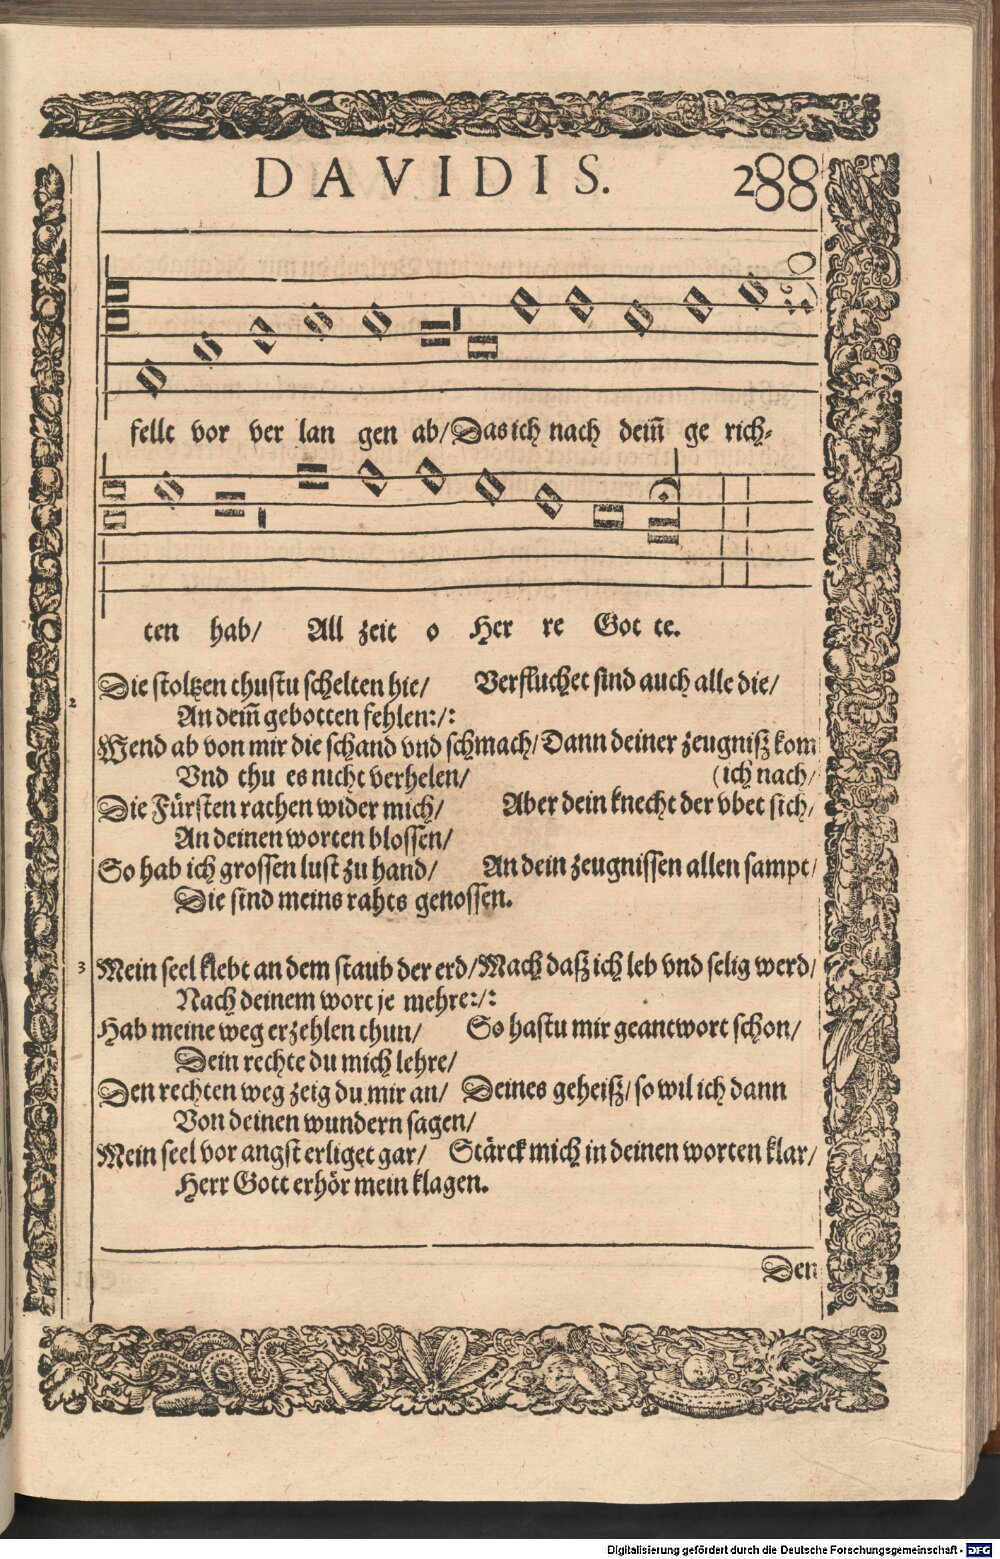 DAVIDIS. 288
fellt vor ver lan gen ab/ Das ich nach dem̃ ge rich-
ten hab/ All zeit o Her re Got te.
2 Die stoltzen thustu schelten hie/ Verfluchet sind auch alle die/
An dem̃ gebotten fehlen:/:
Wend ab von mir die schand vnd schmach/ Dann deiner zeugniß kom
Vnd thu es nicht verhelen/ (ich nach/
Die Fürsten rathen wider mich/ Aber dein knecht der vbet sich/
An deinen worten blossen/
So hab ich grossen lust zu hand/ An dein zeugnissen allen sampt/
Die sind meins rahts genossen.
3 Mein seel klebt an dem staub der erd/ Mach daß ich leb vnd selig werd/
Nach deinem wort je mehre:/:
Hab meine weg erzehlen thun/ So hastu mir geantwort schon/
Dein rechte du mich lehre/
Den rechten weg zeig du mir an/ Deines geheiß/ so wil ich dann
Von deinen wundern sagen/
Mein seel vor angst erliget gar/ Stärck mich in deinen worten klar/
Herr Gott erhör mein klagen.
Den
Digitalisierung gefördert durch die Deutsche Forschungsgemeinschaft - DFG